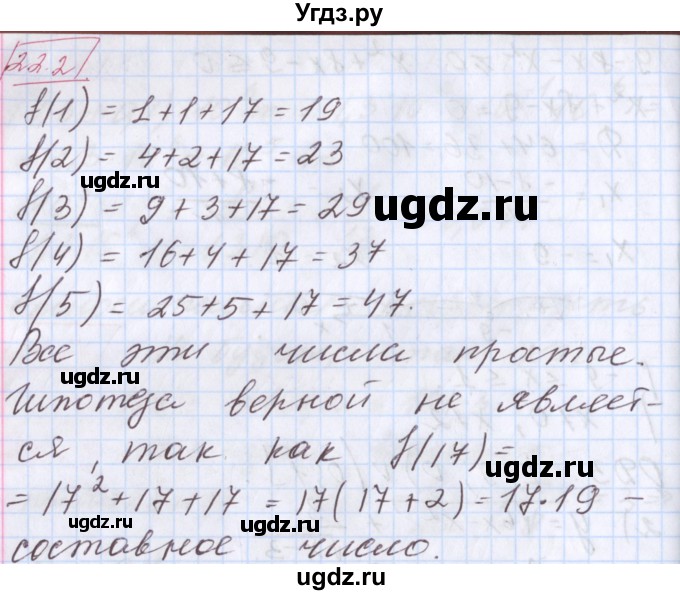 Угдз.ру
22.2
f(1) = 1+1+17 = 19
f(2) = 4+2+17 = 23
ugdz.ru
ugdz.ru
f(3) = 9+3+17 = 29
f(4) = 16+4+17 = 37
f(5) = 25+5+17 = 47.
Все эти числа простые.
ugdz.ru
ugdz.ru
Гипотеза верной не являет-
ся, так как f(17) =
ugdz.ru
= 17² + 17 + 17 = 17(17+2) = 17·19 –
ugdz.ru
составное число.
ugdz.ru